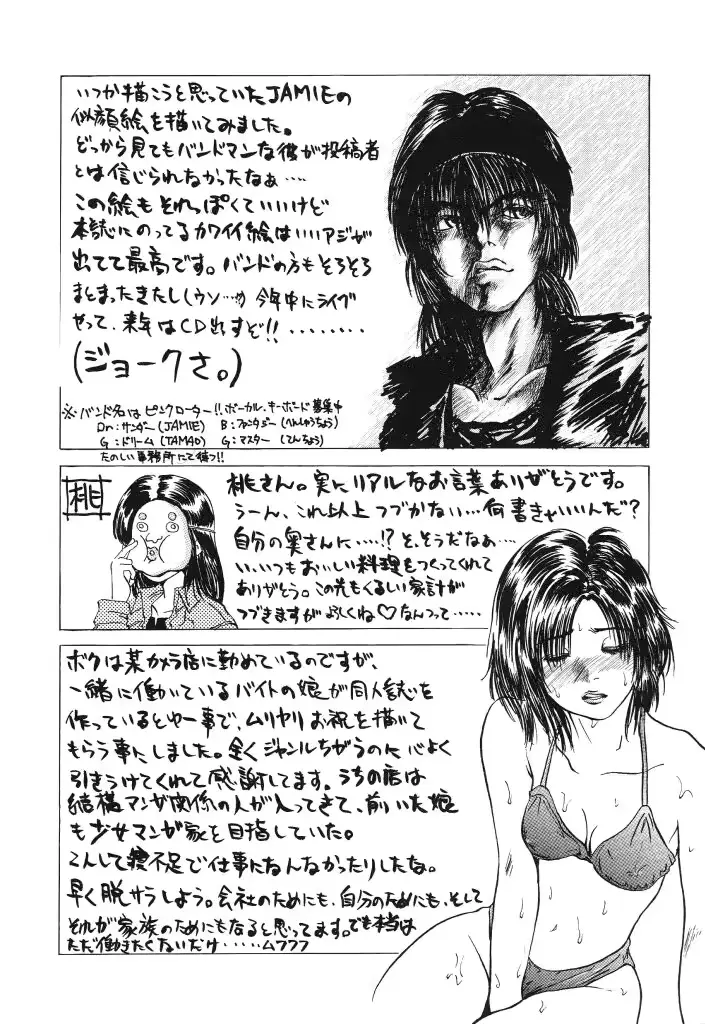 いつか描こうと思っていたJAMIEの
似顔絵を描いてみました。
どっから見てもバンドマンな彼が投稿者
とは信じられなかったなぁ‥‥
この絵も それっぽくていいけど
本誌にのってるカワイイ絵は いいアジが
出てて最高です。バンドの方もそろそろ
まとまってきたし(ウソ…) 今年中にライヴ
やって、来年はCD出すぞ!!・・・・・・・・
(ジョークさ。)
※バンド名は ピンクローター!! ボーカル、キーボード募集中
Dr:サンダー(JAMIE) B:ファンタジー(へんしゅうちょう)
G:ドリーム(TAMAO) G:マスター(てんちょう)
たのしい事務所にて待つ!!
桃
桃さん。実にリアルなお言葉ありがとうです。
うーん、これ以上つづかない…何書きゃいいんだ?
自分の奥さんに‥‥!? そ、そうだなぁ…
い、いつもおいしい料理をつくってくれて
ありがとう。この先もくるしい家計が
つづきますが よろしくね♡なんつって‥‥‥
ボクは某カメラ店に勤めているのですが、
一緒に働いているバイトの娘が同人誌を
作っているとゆー事で、ムリヤリお祝を描いて
もらう事にしました。全くジャンルちがうのに心よく
引きうけてくれて感謝してます。うちの店は
結構マンガ関係の人が入ってきて、前いた娘
も少女マンガ家を目指していた。
こんして寝不足で仕事になんなかったりしたな。
早く脱サラしよう。会社のためにも、自分のためにも、そして
それが家族のためにもなると思ってます。でも本当は
ただ働きたくないだけ‥‥‥ムフフフ